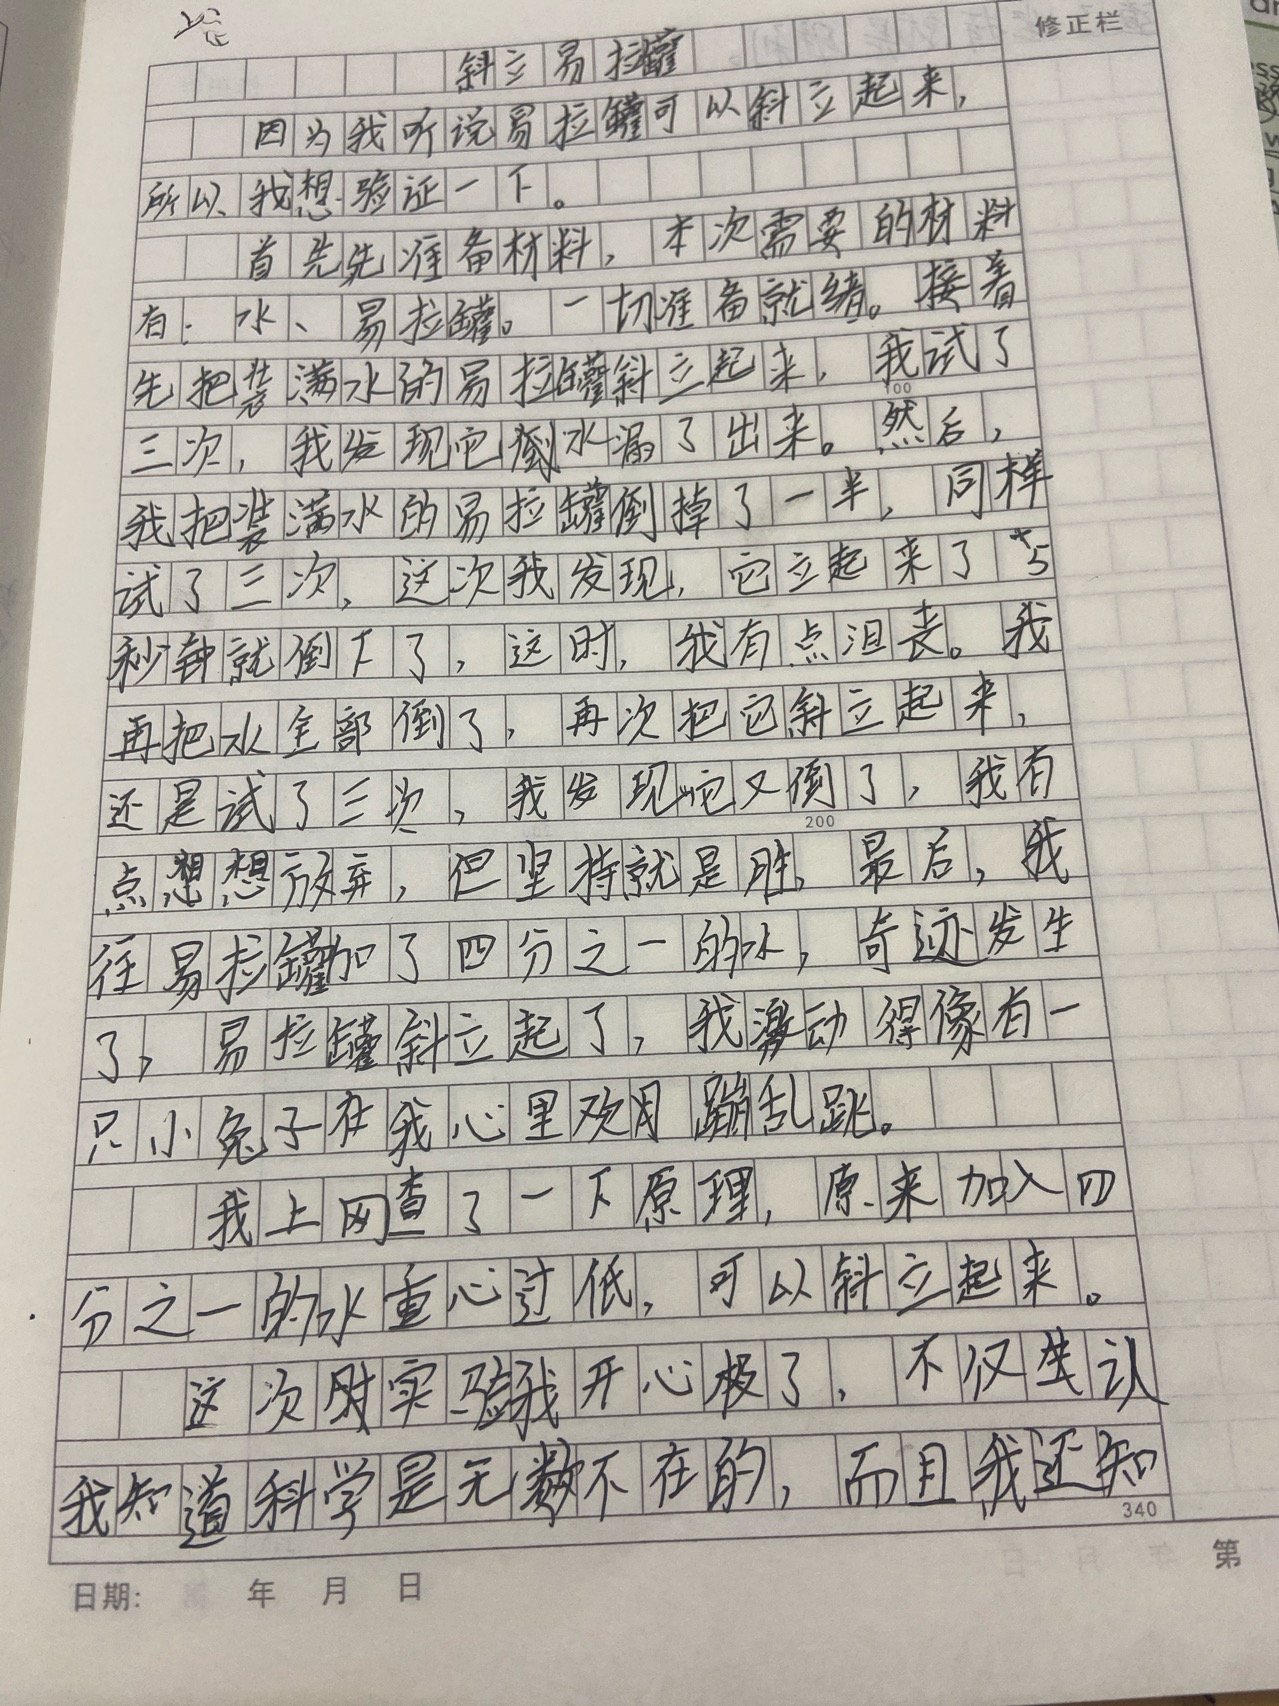 修正栏
斜立易拉罐
因为我听说易拉罐可以斜立起来，
所以我想验证一下。
首先先准备材料，本次需要的材料
有：水、易拉罐。一切准备就绪。接着
先把装满水的易拉罐斜立起来，我试了
100
三次，我发现它倒水漏了出来。然后，
我把装满水的易拉罐倒掉了一半，同样
试了三次，这次我发现，它立起来了 5
秒钟就倒下了，这时，我有点沮丧。我
再把水全部倒了，再次把它斜立起来，
还是试了三次，我发现它又倒了，我有
200
点想想放弃，但坚持就是胜。最后，我
往易拉罐加了四分之一的水，奇迹发生
了，易拉罐斜立起了，我激动得像有一
只小兔子在我心里欢月蹦乱跳。
我上网查了一下原理，原来加入四
分之一的水重心过低，可以斜立起来。
这次实验我开心极了，不仅让
我知道科学是无数不在的，而且我还知
340
日期： 年 月 日
第